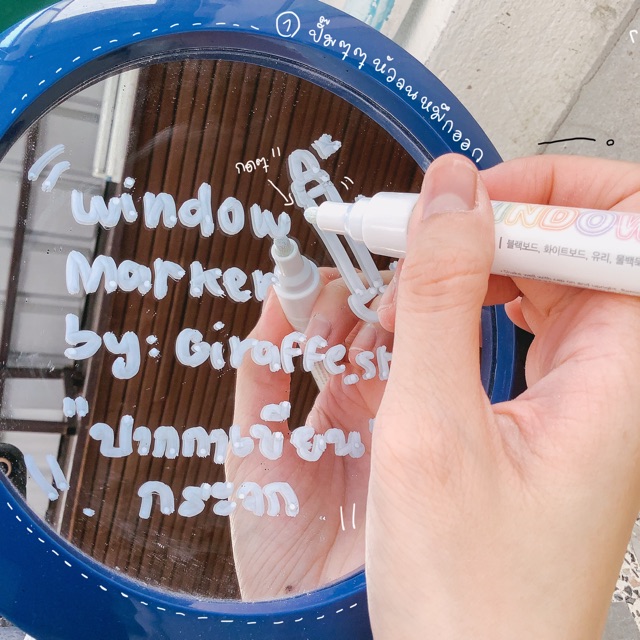 ① ปั๊มๆๆ หัวจนหมึกออก
กดๆ!!
"window
Marker
by: Giraffe.sh
"ปากกาเขียน
กระจก"
WINDOW
블랙보드, 화이트보드, 유리, 물백묵